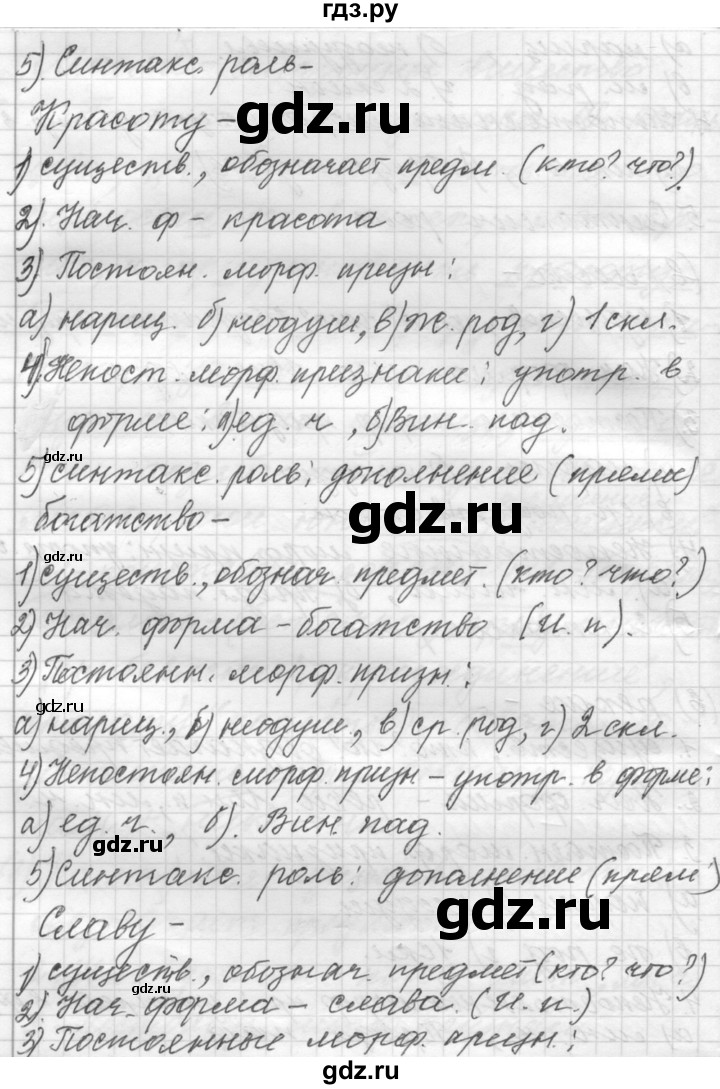 гдз.ру
5) Синтакс. роль-
Красоту -
gdz.ru
1) существ., обозначает предм. (кто? что?).
2). Нач. ф - красота
3) Постоян. морф. призн:
а) нариц. б) неодуш, в) ж. род, г) 1 скл.
4) Непост. морф. признаки: употр. в
gdz.ru
форме: а) ед. ч, б) Вин. пад.
gdz.ru
5) синтакс. роль: дополнение (прямы)
богатство -
gdz.ru
1) существ., обознач. предмет. (кто? что?)
gdz.ru
2) Нач. форма - богатство (И. п).
3) Постоянн. морф. призн:
gdz.ru
а) нариц., б) неодуш., в) ср. род, г) 2 скл.
4) Непостоян. морф. призн - употр. в форме:
а) ед. ч., б). Вин. пад.
gdz.ru
5) Синтакс. роль: дополнение (прям)
Славу -
gdz.ru
1) существ., обознач. предмет (кто? что?)
2). Нач. форма - слава. (И. п.)
3) Постоянные морф. призн.:
gdz.ru